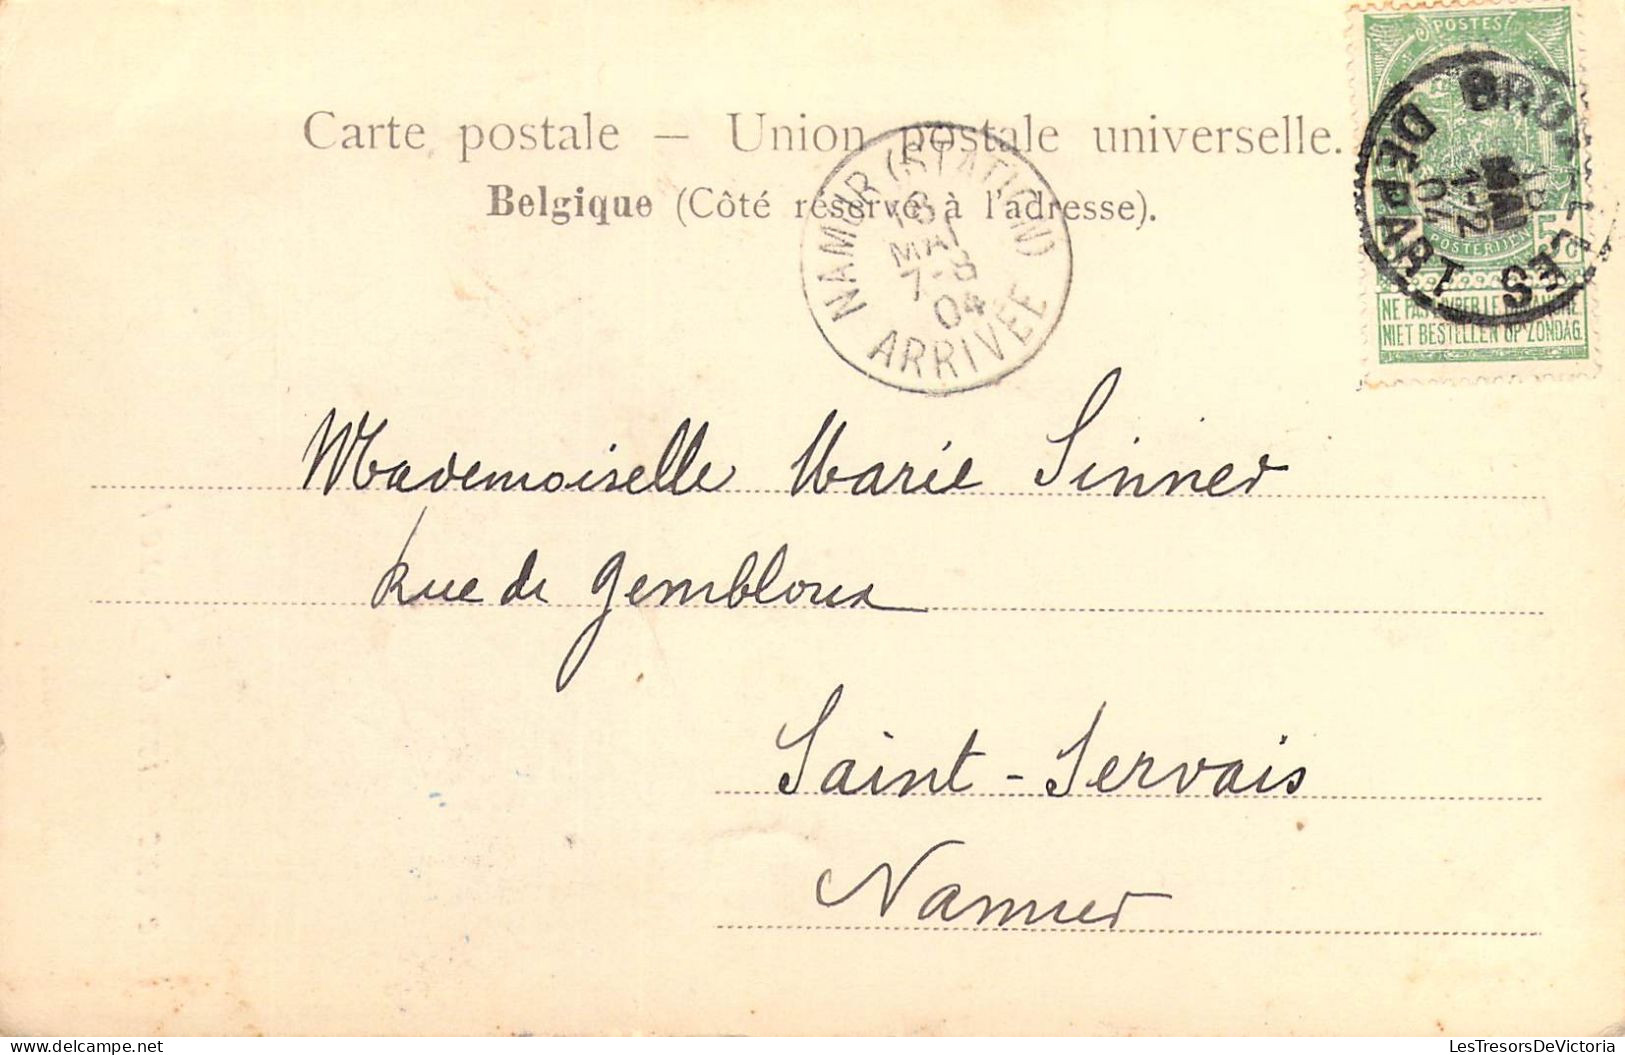 POSTES
Carte postale — Union postale universelle.
Belgique (Côté réservé à l'adresse).
NAMUR (STATION)
18
MAI
7-8
04
ARRIVÉE
BRUXELLES
MAI
1-2
04
DEPART
POSTERIJEN
5c
NE PAS LIVRER LE DIMANCHE
NIET BESTELLEN OP ZONDAG
Mademoiselle Marie Sinner
Rue de Gembloux
Saint-Servais
Namur
LesTresorsDeVictoria